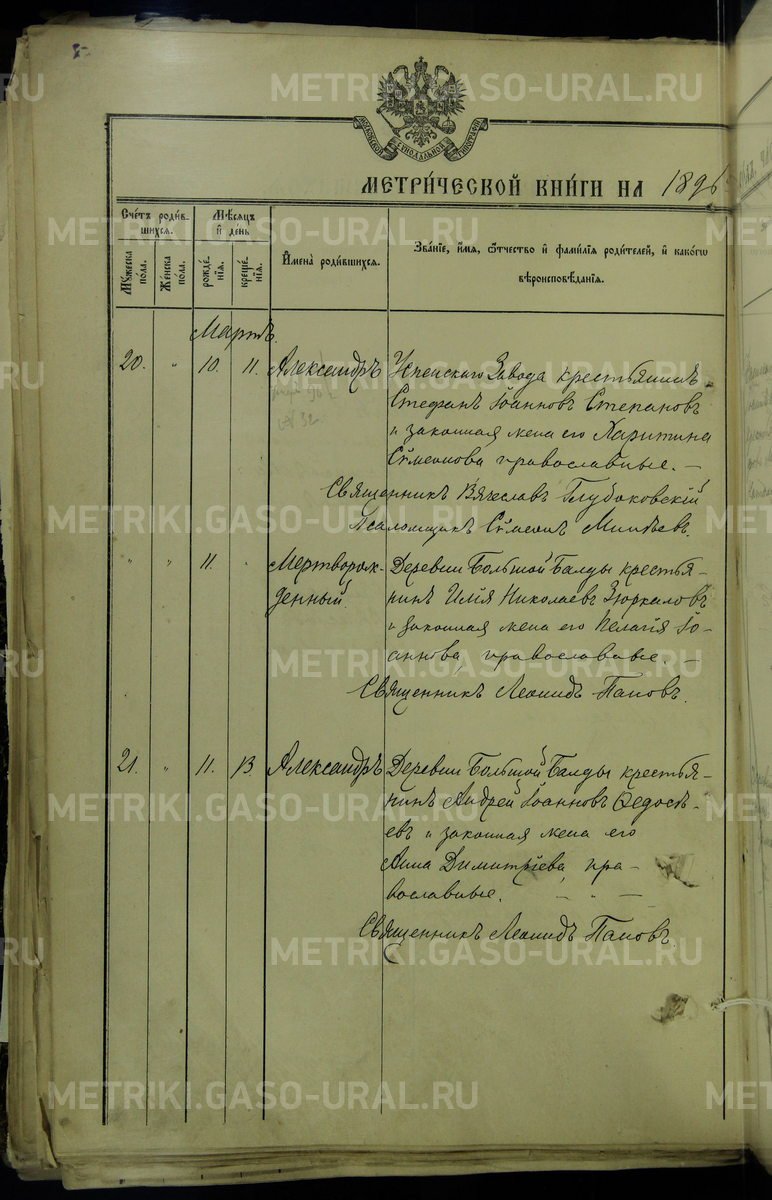 МОСКОВСКОЙ СѴНОДАЛЬНОЙ ТИПОГРАФІИ
МЕТРИ́ЧЕСКОЙ КНИ́ГИ НА 1896
Сче́тъ роди́в-
шихся.
Мѣ́сяцъ
и҆ день
Мꙋжеска
по́ла.
Же́нска
по́ла.
рожде́-
нія.
креще́-
нія.
И҆мена̀ роди́вшихся.
Зва́ніе, и҆́мя, ѻ҆́тчество и҆ фами́лія роди́телей, и҆ како́гѡ
вѣроисповѣ́данія.
Мартъ.
20. " 10. 11. Александръ Успенскаго Завода крестьянинъ
Стефанъ Іоанновъ Степановъ
№ 32.
и законная жена его Харитина
Сѵмеонова православные. —
Священникъ Вячеславъ Глубоковскій
Псаломщикъ Сѵмеонъ Минѣевъ.
" " 11. " Мертворож- Деревни Большой Балды крестья-
денный. нинъ Илія Николаевъ Зюркаловъ
и законная жена его Пелагія Іо-
аннова, православные. —
Священникъ Леонидъ Паповъ.
21. " 11. 13 Александръ Деревни Большой Балды крестья-
нинъ Андрей Іоанновъ Ѳедосѣ-
евъ и законная жена его
Анна Димитріева, пра-
вославные. — " —
Священникъ Леонидъ Паповъ.
METRIKI.GASO-URAL.RU